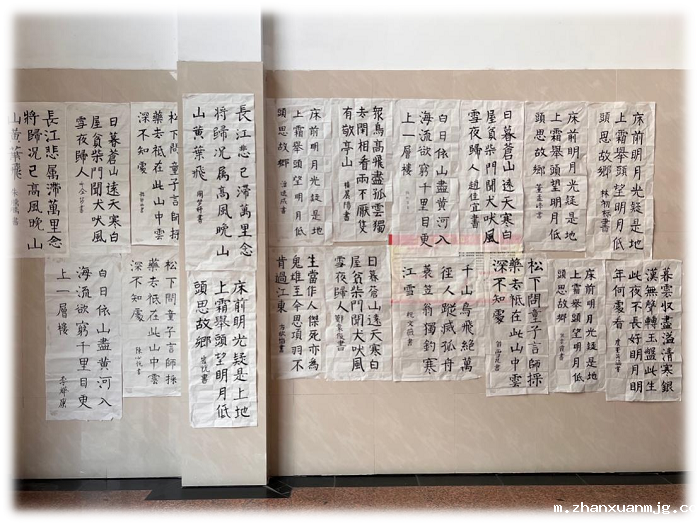 床前明月光疑是地
上霜舉頭望明月低
頭思故鄉
床前明月光疑是地
上霜舉頭望明月低
頭思故鄉 董孟婷書
日暮蒼山遠天寒白
屋貧柴門聞犬吠風
雪夜歸人 趙佳宜書
白日依山盡黃河入
海流欲窮千里目更
上一層樓
衆鳥高飛盡孤雲獨
去閑相看兩不厭隻
有敬亭山 楊晨陽書
床前明月光疑是地
上霜舉頭望明月低
頭思故鄉
長江悲已滯萬里念
將歸況属高風晚山
山黄葉飛 周梦婷書
松下問童子言師採
藥去祗在此山中雲
深不知處
日暮蒼山遠天寒白
屋貧柴門聞犬吠風
雪夜歸人
長江悲属滯萬里念
將歸況已高風晚山
山黄葉飛
暮雲收盡溢清寒銀
漢無聲轉玉盤此生
此夜不長好明月明
年何處看
床前明月光疑是地
上霜舉頭望明月低
頭思故鄉
松下問童子言師採
藥去祗在此山中雲
深不知處
千山鳥飛絶萬
徑人蹤滅孤舟
蓑笠翁獨釣寒
江雪
日暮蒼山遠天寒白
屋貧柴門聞犬吠風
雪夜歸人
生當作人傑死亦為
鬼雄至今思項羽不
肯過江東
床前明月光疑是上地
上霜舉頭望明月低
頭思故鄉
松下問童子言師採
藥去祗在此山中雲
深不知處
白日依山盡黃河入
海流欲窮千里目更
上一層樓 李輝康
m.zhanxuanmjg.c